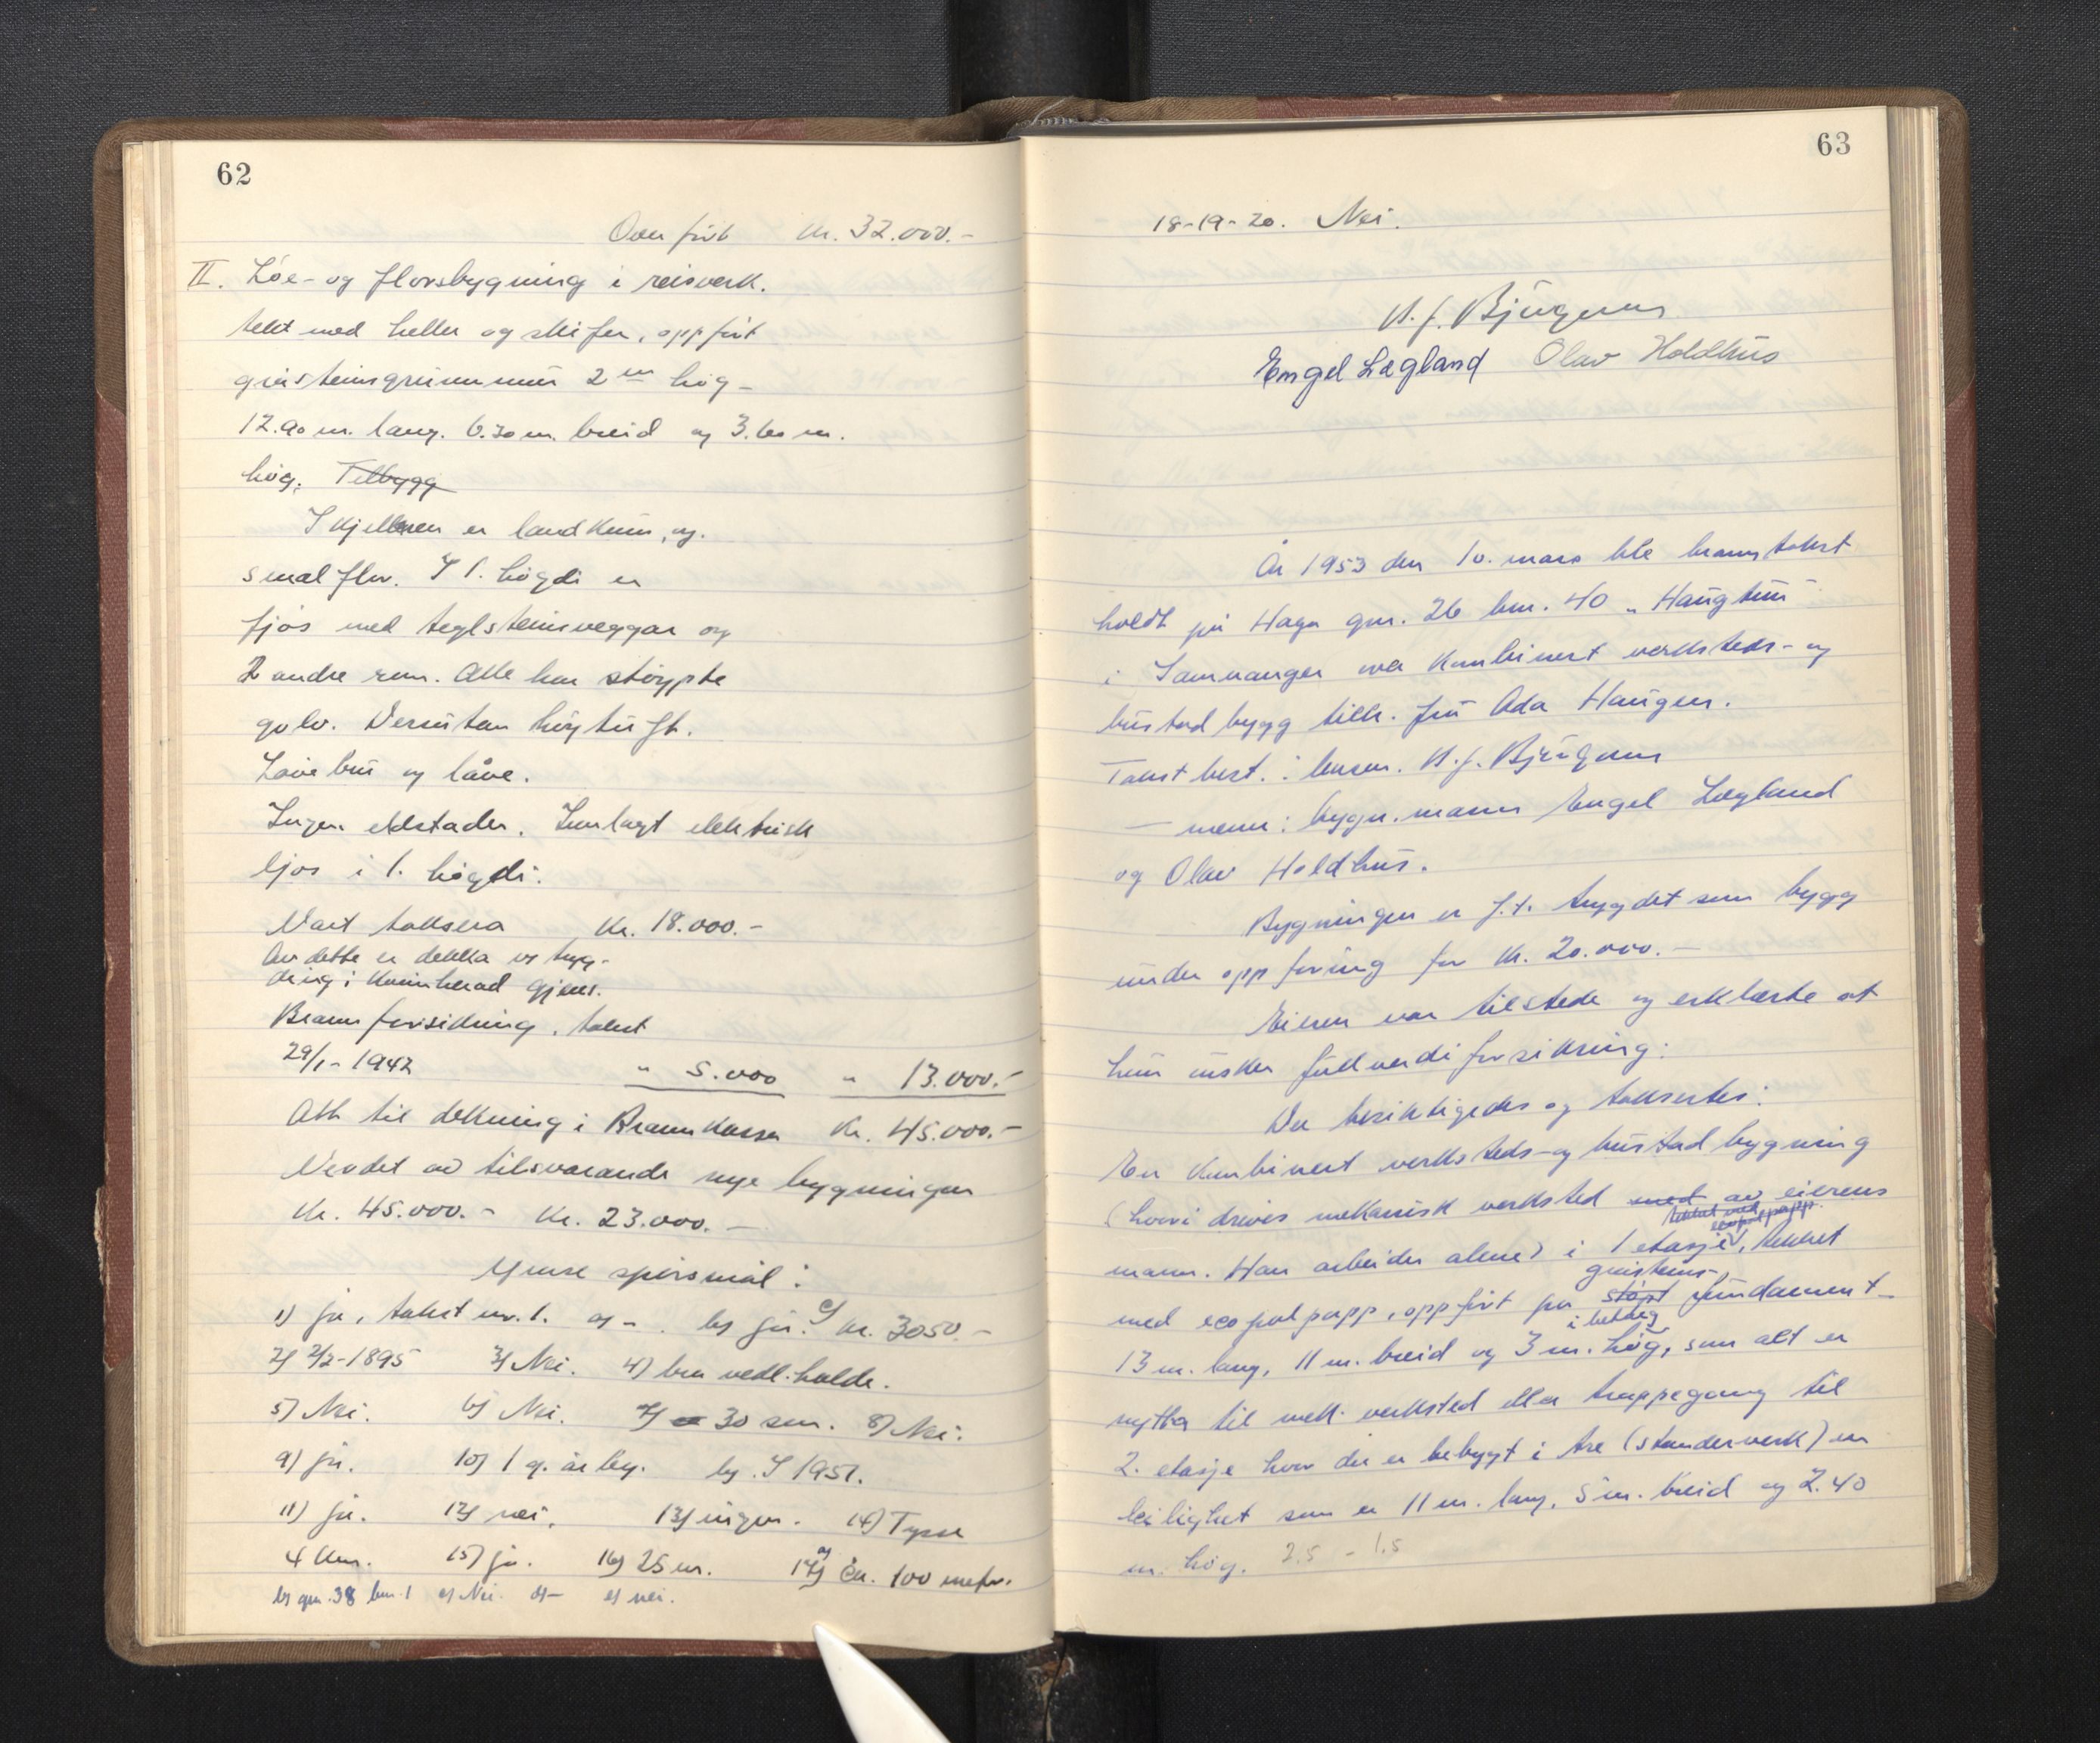 62
Overført kr. 32.000.-
II. Løe- og florsbygning i reisverk.
tekt med heller og skifer, oppført
gråsteinsgrunnmur 2 m høg-
12.90 m. lang. 6.30 m. breid og 3.60 m.
høg. Tilbygg
I kjelleren er landkum, og
smalflor. I 1. høgdi er
fjøs med teglsteinsveggar og
2 andre rom. Alle har støypte
golv. Desutan høytuft.
Løebru og låve.
Ingen eldstader. Innlagt elektrisk
ljos i 1. høgdi.
Vart taksera Kr. 18.000.-
Av dette er dekka ved tryg-
ding i Kvinnherad gjens.
Brannforsikring, takst
29/1-1942 " 5.000 " 13.000.-
Att til dekning i Brannkassa Kr. 45.000.-
Verdet av tilsvarande nye bygningar
Kr. 45.000.- Kr. 23.000.-
Ymse spørsmål:
1) ja, takst nr. 1. a) - . b) ja. c) kr. 3050.-
2) 2/2-1895 3) Nei. 4) bra vedl.holde.
5) Nei. 6) Nei. 7) 30 sm. 8) Nei.
9) ja. 10) 1 g. årleg. b) I 1951.
11) ja. 12) nei. 13) ingen. 14) Tysse
4 km. 15) ja. 16) 25 m. 17) a) Ca. 100 meter.
b) gnr. 38 bnr. 1 c) Nei. d) - e) nei.
63
18-19-20. Nei.
N. J. Bjørgum
Engel Lægland Olav Holdhus
År 1953 den 10. mars ble branntakst
holdt på Haga gnr. 26 bnr. 40 "Haugtun"
i Samnanger over kombinert verksteds- og
bustadbygg tilh. fru Ada Haugen.
Takstbest.: lensm. N. J. Bjørgum
— menn: bygn.mann Engel Lægland
og Olav Holdhus.
Bygningen er f.t. trygdet som bygg
under oppføring for kr. 20.000.-
Eieren var tilstede og erklærte at
hun ønsker fullverdiforsikring:
Der besiktigedes og taksertes:
En kombinert verksteds- og bustadbygning
(hvori drives mekanisk verksted med av eierens
tekket med
ecopolpapp.
mann. Han arbeider alene) i 1 etasje, tekket
gråsteins-
med ecopolpapp, oppført på støpt fundament-
i betong
13 m. lang, 11 m. breid og 3 m. høg, som alt er
nytta til mek. verksted eller trappegang til
2. etasje hvor der er bebygt i tre (standerverk) en
leilighet som er 11 m. lang, 5 m. breid og 2.40
m. høg. 2.5 - 1.5